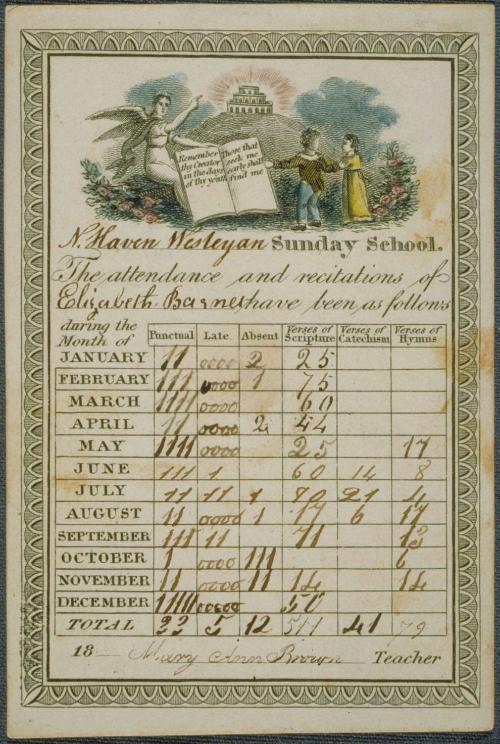 Remember thy Creator in the days of thy youth
Those that seek me early shall find me
N. Haven Wesleyan Sunday School.
The attendance and recitations of
Elizabeth Barnes have been as follows
during the Month of Punctual Late Absent Verses of Scripture Verses of Catechism Verses of Hymns
JANUARY 11 0000 2 25
FEBRUARY 1111 0000 1 75
MARCH 1111 0000 60
APRIL 11 0000 2 44
MAY 1111 0000 25 17
JUNE 111 1 60 14 8
JULY 11 11 1 70 21 4
AUGUST 11 0000 1 17 6 17
SEPTEMBER 111 11 71 13
OCTOBER 1 0000 111 6
NOVEMBER 11 0000 11 14 14
DECEMBER 11111 00000 50
TOTAL 33 5 12 511 41 79
18 Mary Ann Brown Teacher